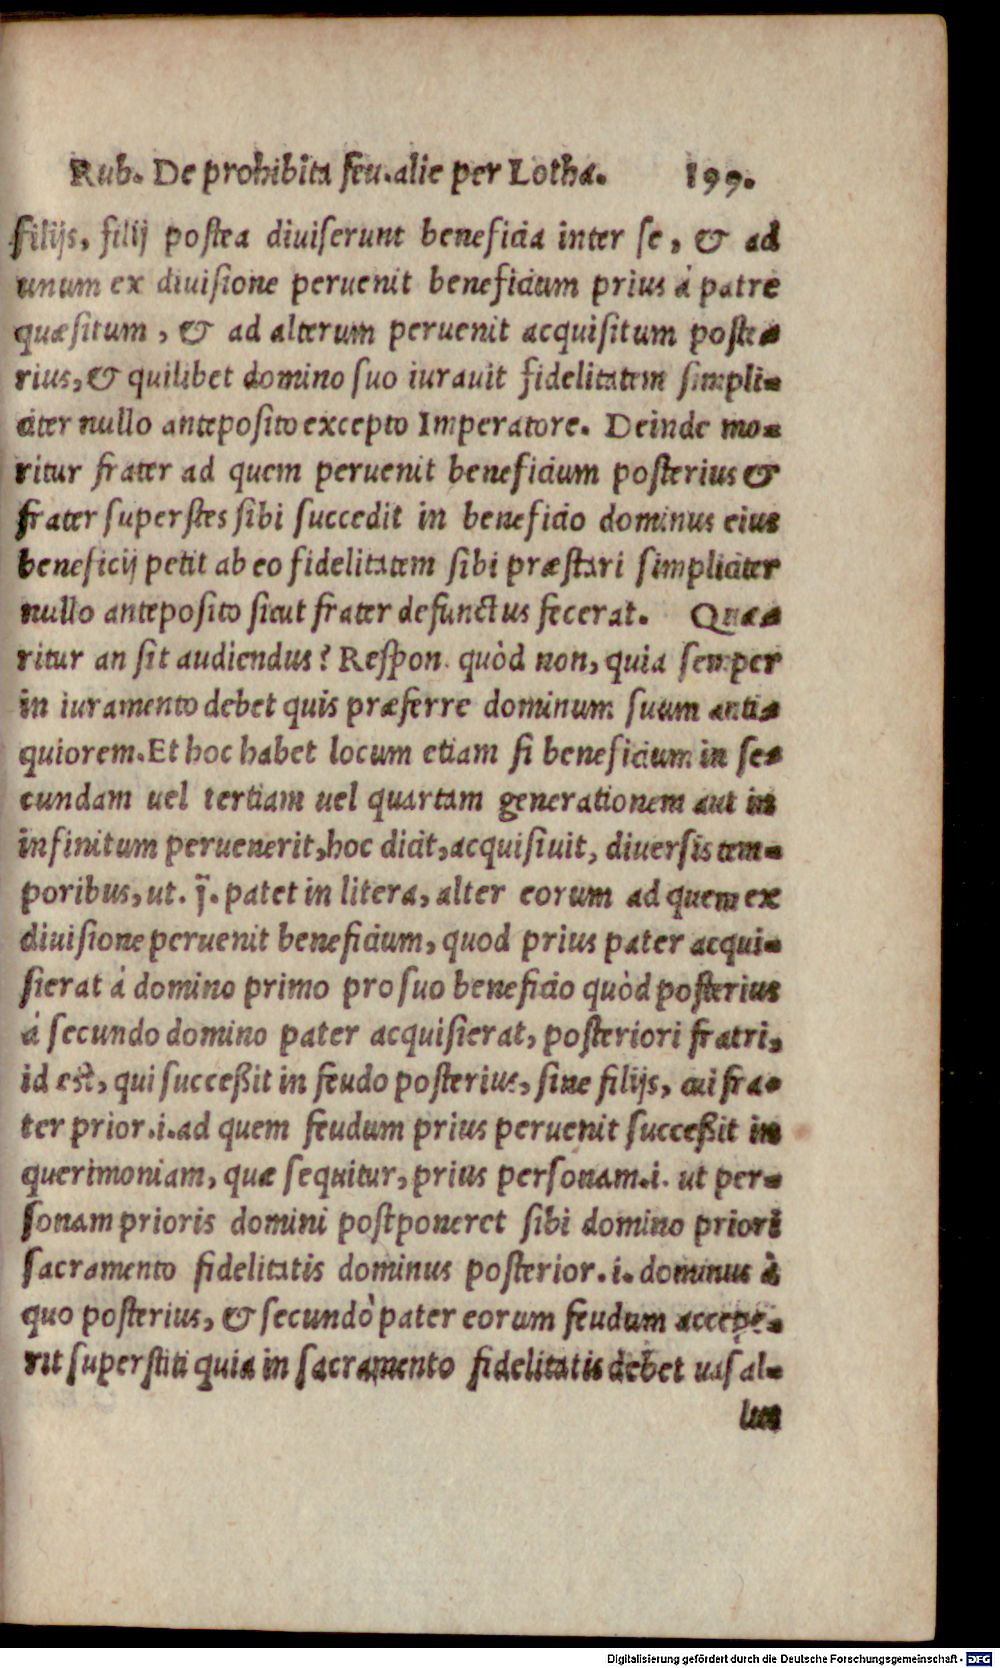 Rub. De prohibita feu.alie per Lotha. 199.
filijs, filij postea diuiserunt beneficia inter se, & ad
unum ex diuisione peruenit beneficium prius à patre
quæsitum, & ad alterum peruenit acquisitum poste-
rius, & quilibet domino suo iurauit fidelitatem simpli-
citer nullo anteposito excepto Imperatore. Deinde mo-
ritur frater ad quem peruenit beneficium posterius &
frater superstes sibi succedit in beneficio dominus eius
beneficij petit ab eo fidelitatem sibi præstari simpliciter
nullo anteposito sicut frater defunctus fecerat. Quæ-
ritur an sit audiendus? Respon. quòd non, quia semper
in iuramento debet quis præferre dominum suum anti-
quiorem. Et hoc habet locum etiam si beneficium in se-
cundam uel tertiam uel quartam generationem aut in
infinitum peruenerit, hoc dicit, acquisiuit, diuersis tem-
poribus, ut. j̈. patet in litera, alter eorum ad quem ex
diuisione peruenit beneficium, quod prius pater acqui-
sierat à domino primo pro suo beneficio quòd posterius
à secundo domino pater acquisierat, posteriori fratri,
id est, qui succeßit in feudo posterius, sine filijs, cui fra-
ter prior.i.ad quem feudum prius peruenit succeßit in
querimoniam, quæ sequitur, prius personam.i. ut per-
sonam prioris domini postponeret sibi domino priori
sacramento fidelitatis dominus posterior.i. dominus à
quo posterius, & secundò pater eorum feudum accepe-
rit superstiti quia in sacramento fidelitatis debet uasal-
lus
Digitalisierung gefördert durch die Deutsche Forschungsgemeinschaft - DFG